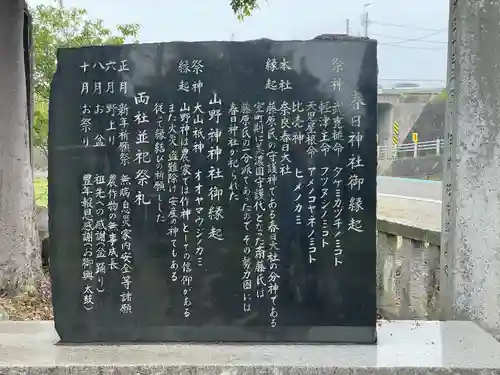 春日神社御縁起
祭神 武甕槌命 タケミカヅチノミコト
軽津主命 フツヌシノミコト
天児屋根命 アメノコヤネノミコト
比売神 ヒメノカミ
本社 奈良春日大社
縁起 藤原氏の守護神である春日大社の分神である
室町期に美濃国守護代となった斎藤氏は
藤原氏の一分派であったので その勢力圏には
春日神社が祀られた
山野神神社御縁起
祭神 大山祇神 オオヤマヅノシカミ
縁起 山野神は農家では作神としての信仰がある
また火災 盗難除け 安産の神でもある
従って縁切りを祈願した
両社並祀祭礼
正月 新年祈願祭 無病息災家内安全等諸願
六月 野上り 農作物の無事成長
八月 お盆 祖先への感謝(盆踊り)
十月 お祭り 豊年報恩感謝(お御輿 太鼓)